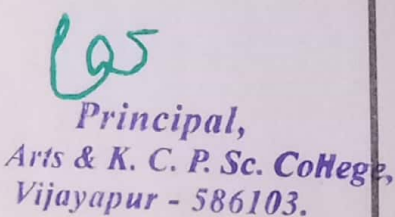 Principal,
Arts & K. C. P. Sc. College,
Vijayapur - 586103.